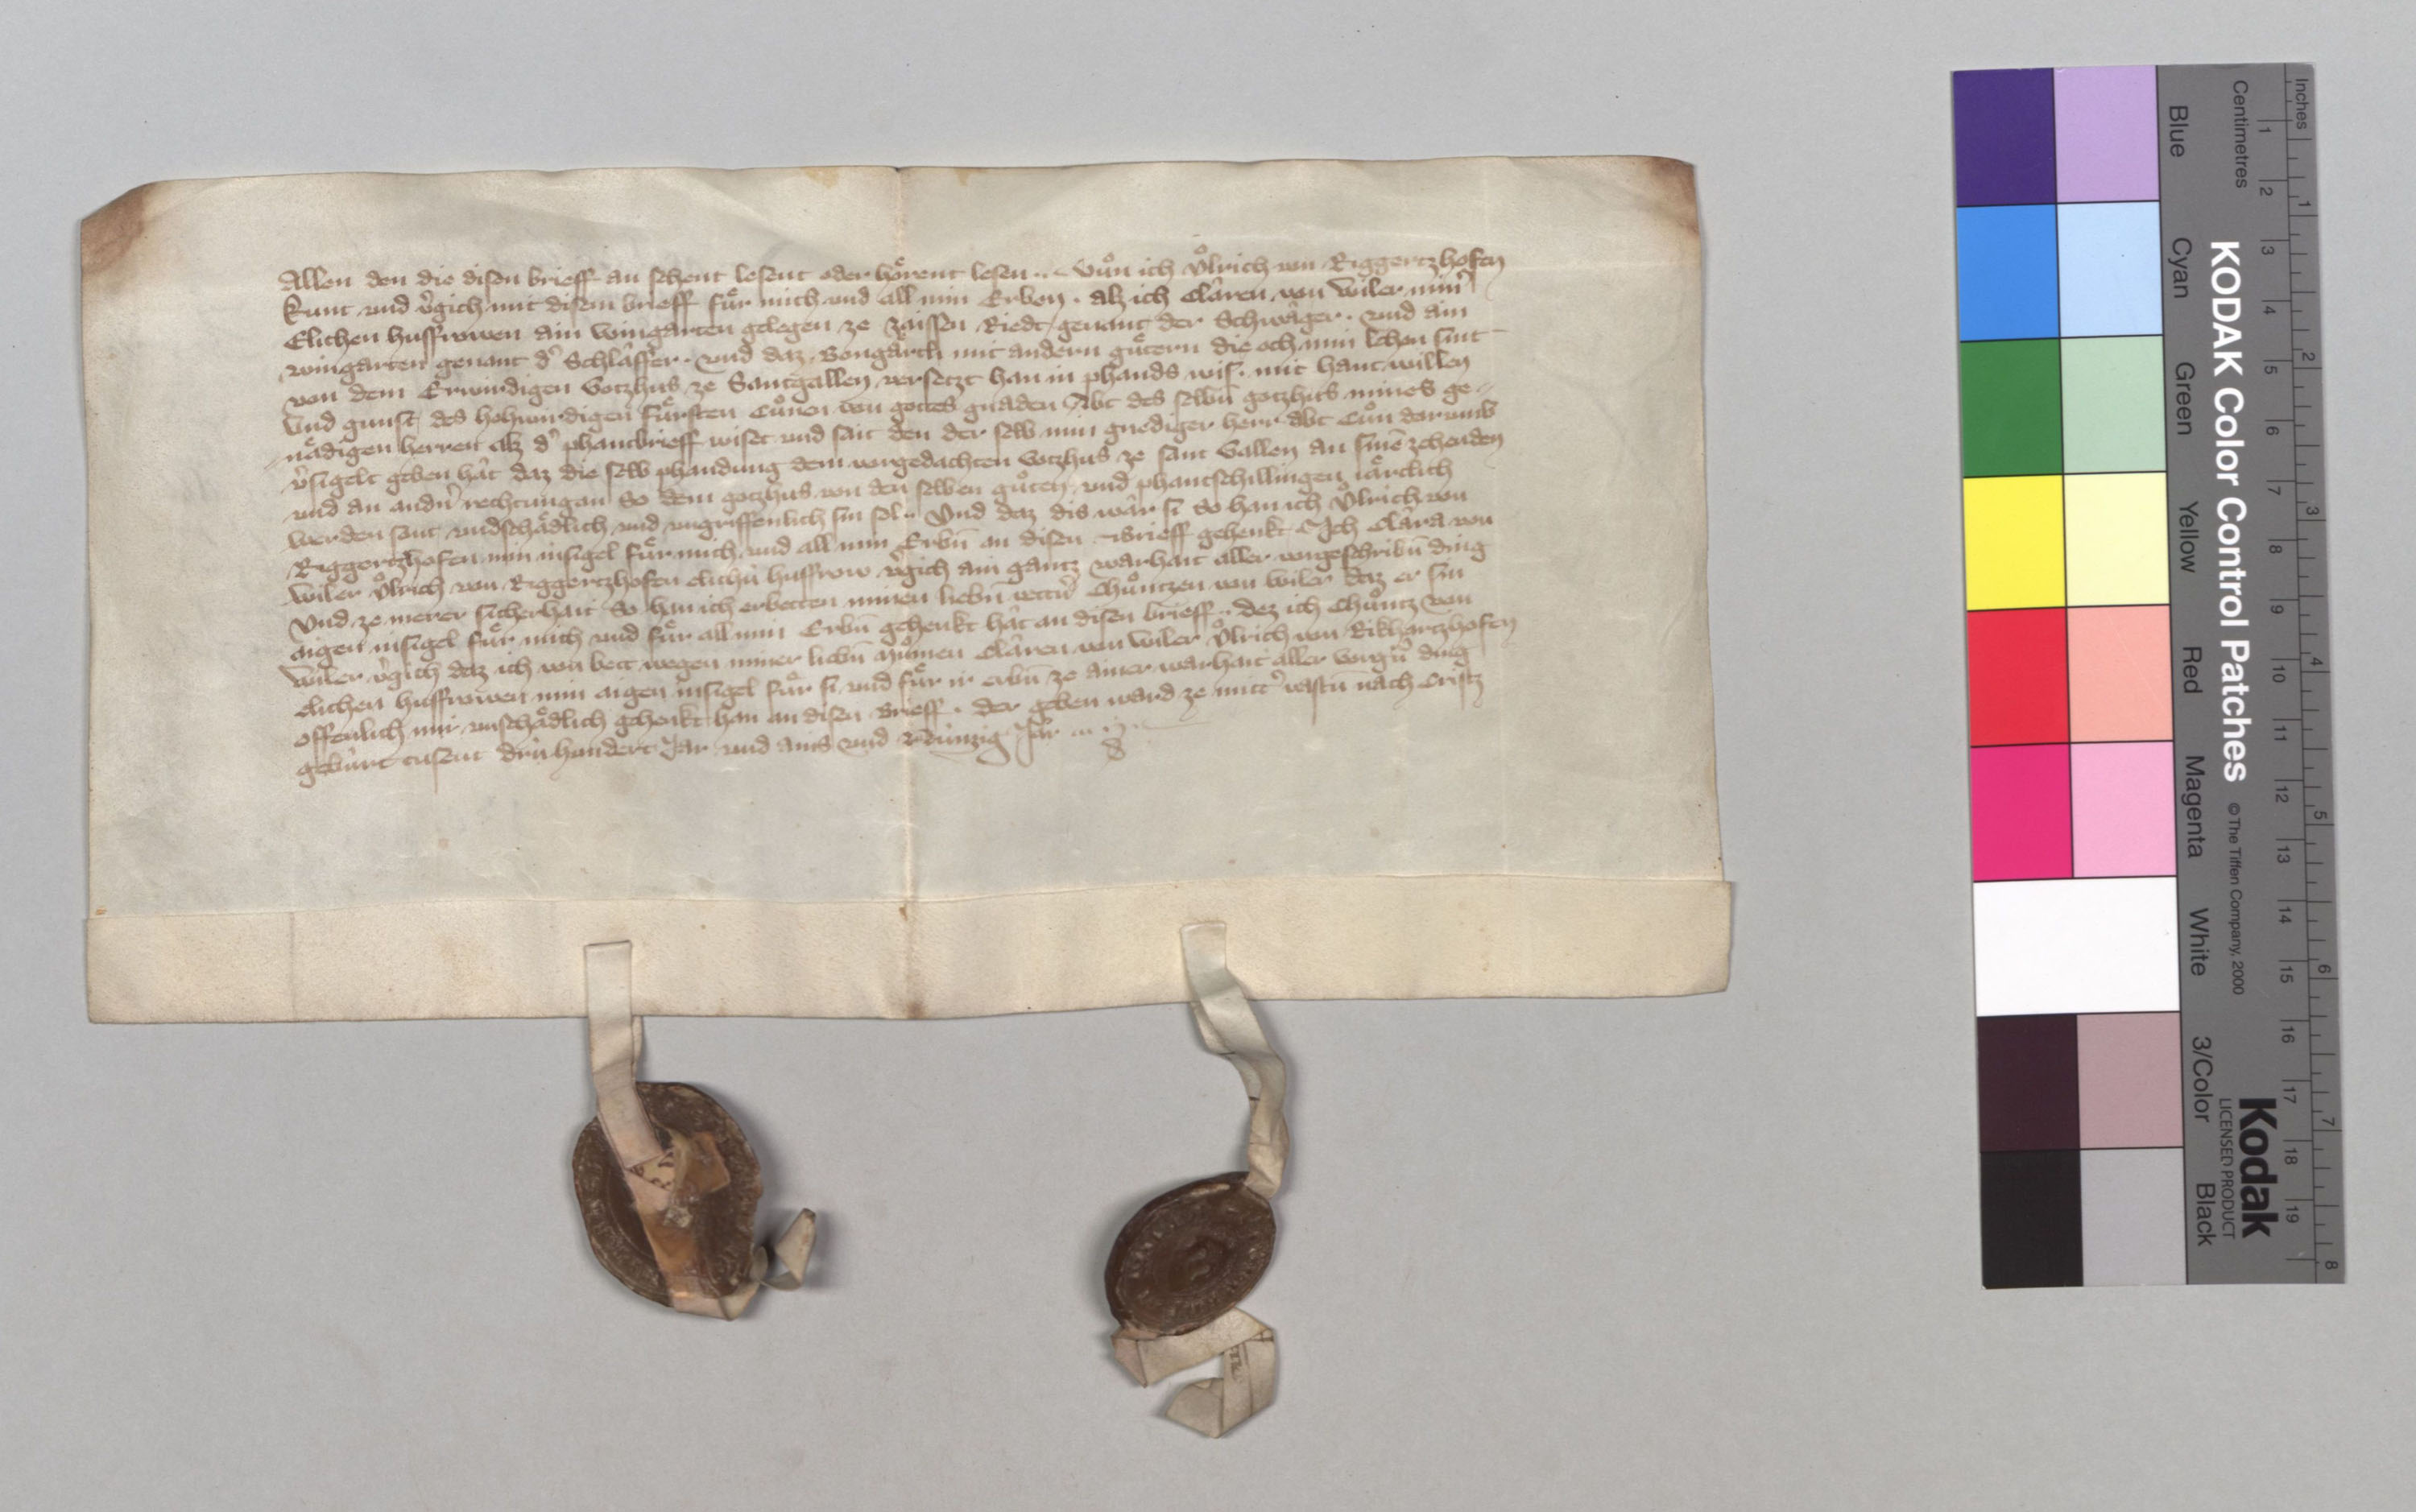 Allen den die disen brieff an sehent lesent oder hoͤrent lesen... Tuͦn ich Uͦlrich von Riggertzhofen
kunt und v̾gich mit disem brieff fuͤr mich und all min Erben. alz ich Clâren von Wiler min̾
Elichen husfrowen ain wingarten gelegen ze Zaissen Riedt genant der Schwâger. und ain
wingarten genant d̾ Schlâffer. und daz Bongârtli mit andern guͤtern die och min lehen sint
von dem Erwirdigen Gotzhus ze Santgallen versetzt han in phands wis. mit hant willen
und gunst des hohwirdigen fuͤrsten Cuͦnen von gottes gnaden Abt des selbn̄ gotzhus mines ge-
nâdigen herren alz d̾ phantbrieff wiset und sait den der selb min gnediger herr Abt Cuͦn darumb
v̾sigelt geben hât daz die selb phandung dem vorgedachten Gotzhus ze sant Gallen an sinē zehenden
und an andn̾ rechtungan so dem gotzhus von den selben guͤtern und phantschillingen iârclich
werden sont unschâdlich und ungriffenlich sin sol.. Und daz dis wâr si so han ich Uͦlrich von
Riggertzhofen min insigel fuͤr mich und all min Erbn̄ an disen Brieff gehenkt. Ich Clâra von
Wiler Uͦlrich von Riggertzhofen elichû husfrow v̾gich ain gantz warhait aller vorgeschribn̄ ding
Und ze merer sicherhait so han ich erbetten minen liebn̄ vettn̾ Chuͦntzen von Wiler daz er sin
aigen insigel fuͤr mich und fuͤr all min Erbn̄ gehenkt hât an disen brieff.. dez ich Chuͦntz von
Wiler v̾gich daz ich von bett wegen miner liebn̄ Muͦmen Clâren von Wiler Uͦlrich von Rikhartzhofen
elichen husfrowen min aigen insigel fuͤr si und fuͤr ir erbn̄ ze ainer warhait aller vorgn̄ ding
offenlich mir unschâdlich gehenkt han an disen Brieff. der geben ward ze mitt̾ vastn̄ nâch Cristz
gebûrt tusent drû hundert Jar und ains und Nûnzig Jâr
KODAK Color Control Patches
© The Tiffen Company, 2000
Kodak
LICENSED PRODUCT
Inches 1 2 3 4 5 6 7 8
Centimetres 1 2 3 4 5 6 7 8 9 10 11 12 13 14 15 16 17 18 19
Blue Cyan Green Yellow Red Magenta White 3/Color Black